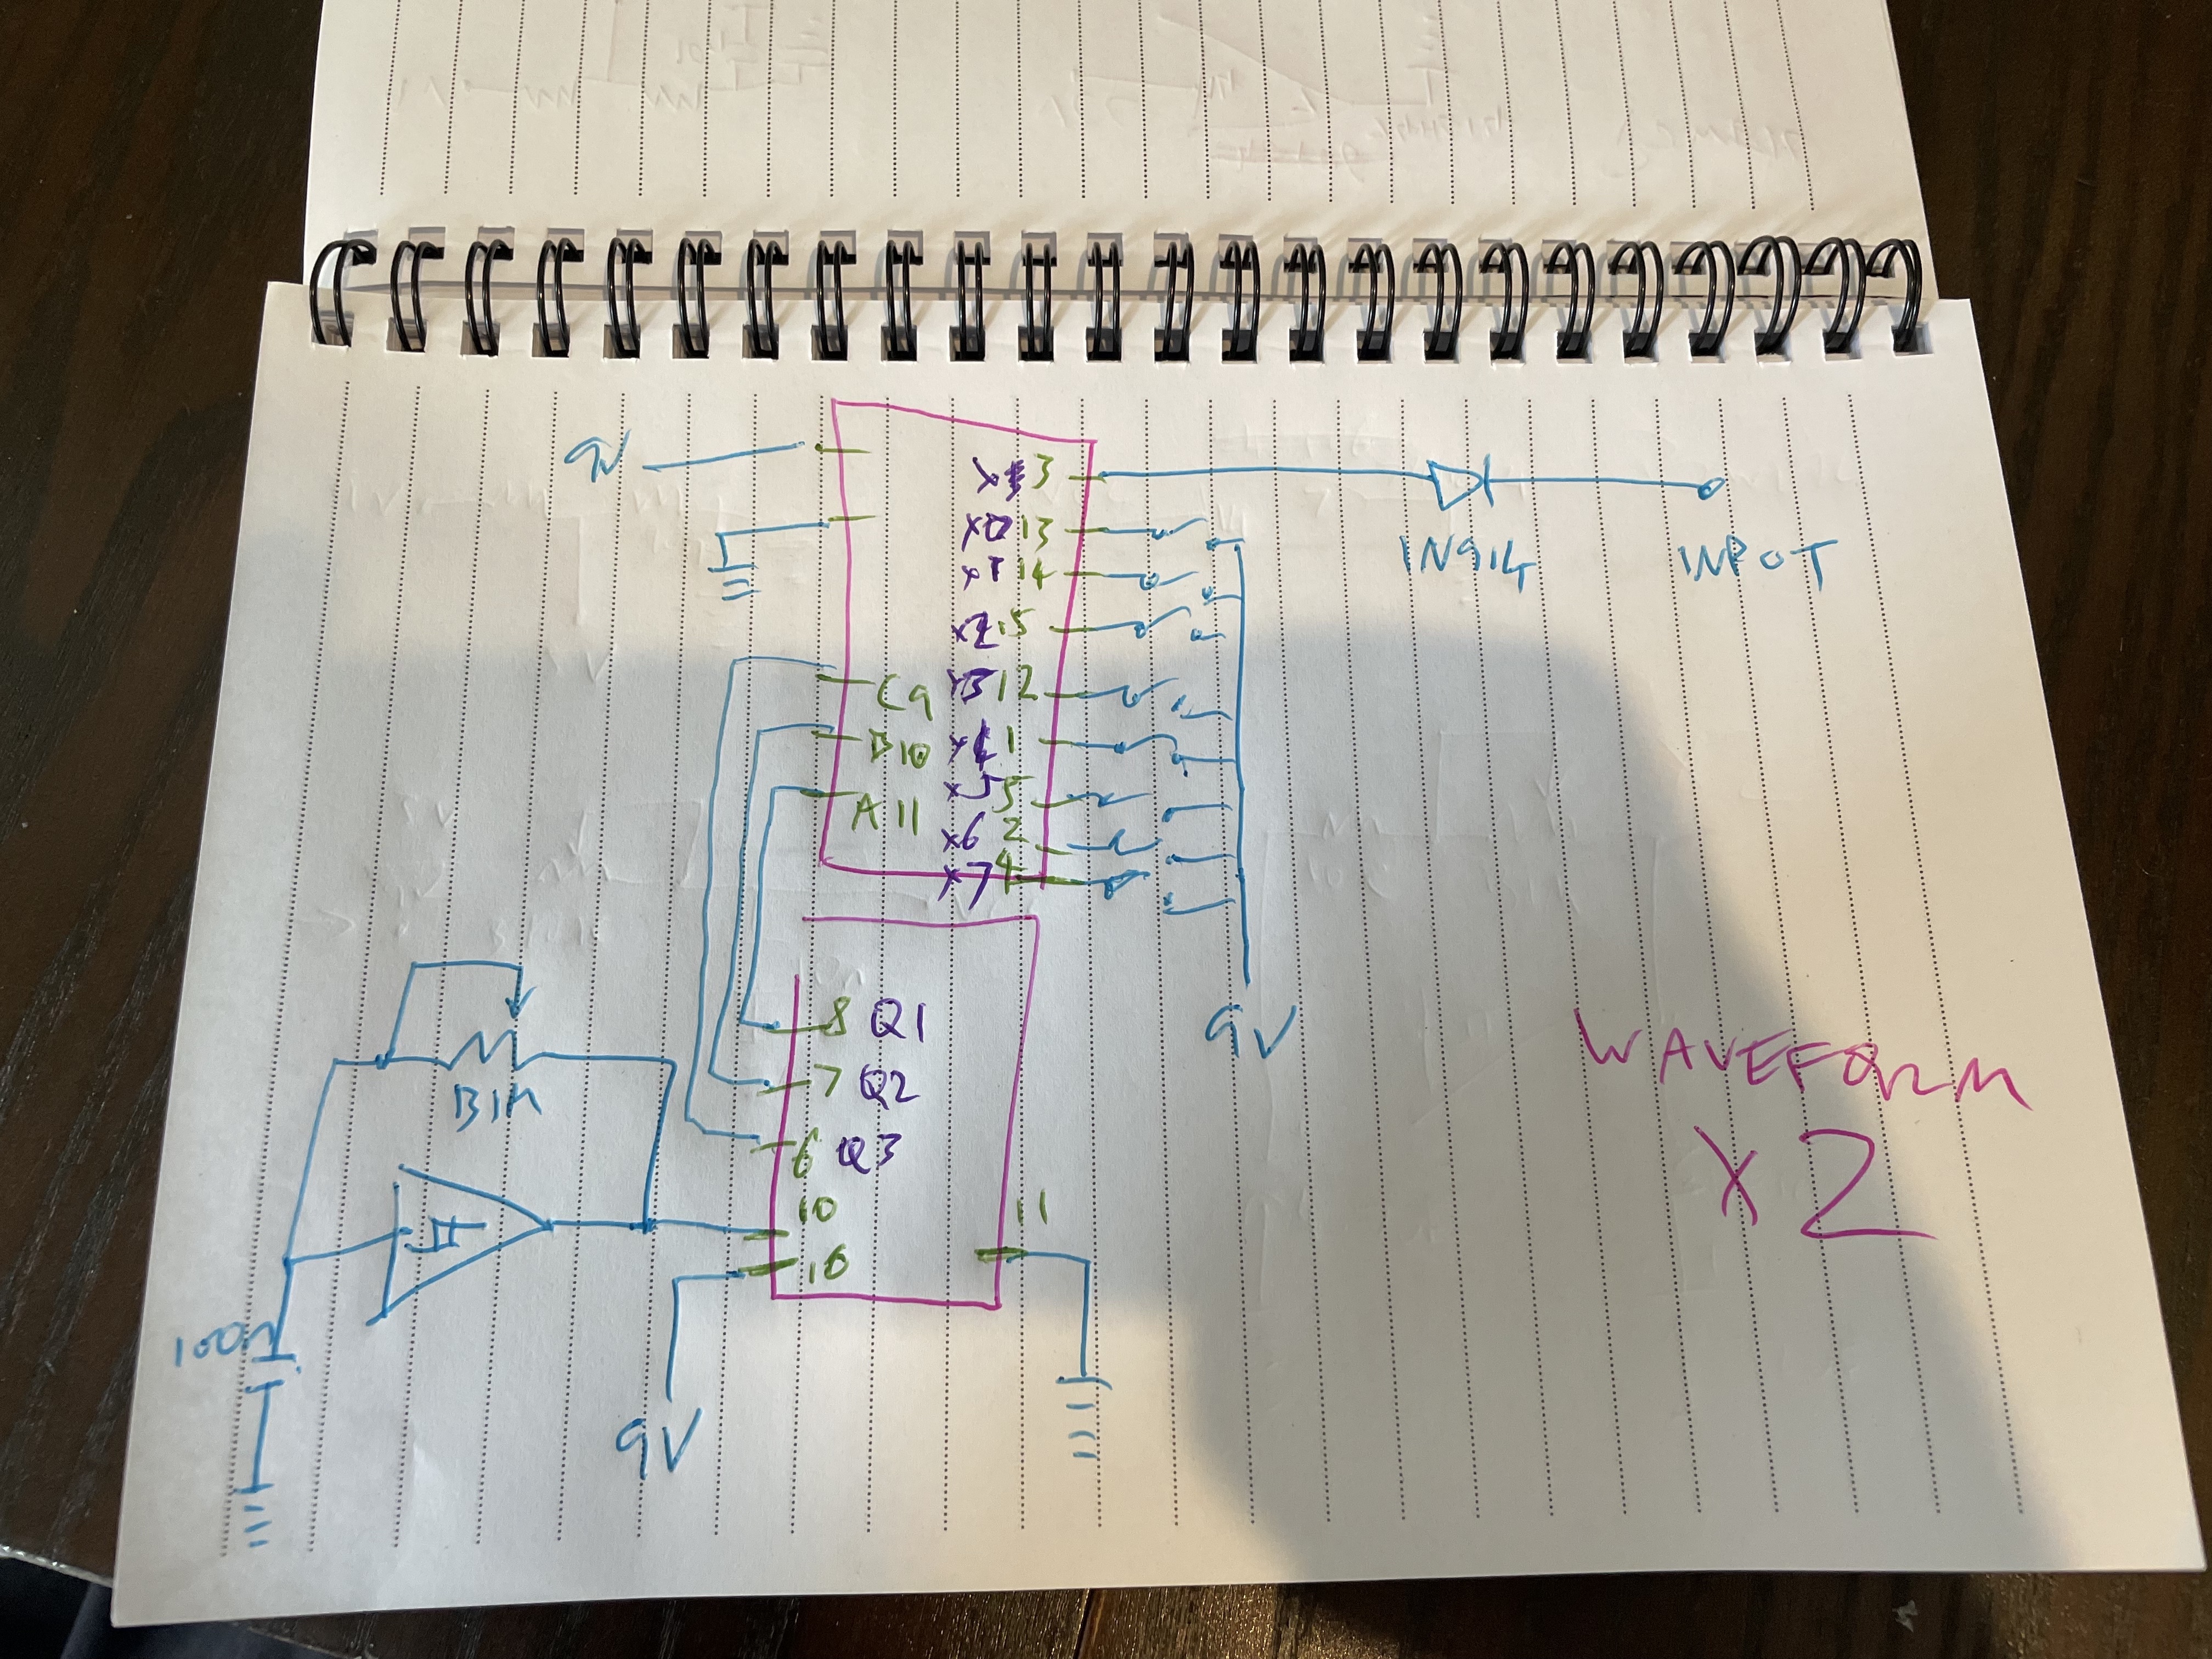 9V
X 3
X0 13
X1 14
X2 15
C9 X3 12
B10 X4 1
X5 5
A11 X6 2
X7 4
1N914
INPUT
9V
8 Q1
7 Q2
6 Q3
10
16
11
B1M
100n
9V
WAVEFORM
X2